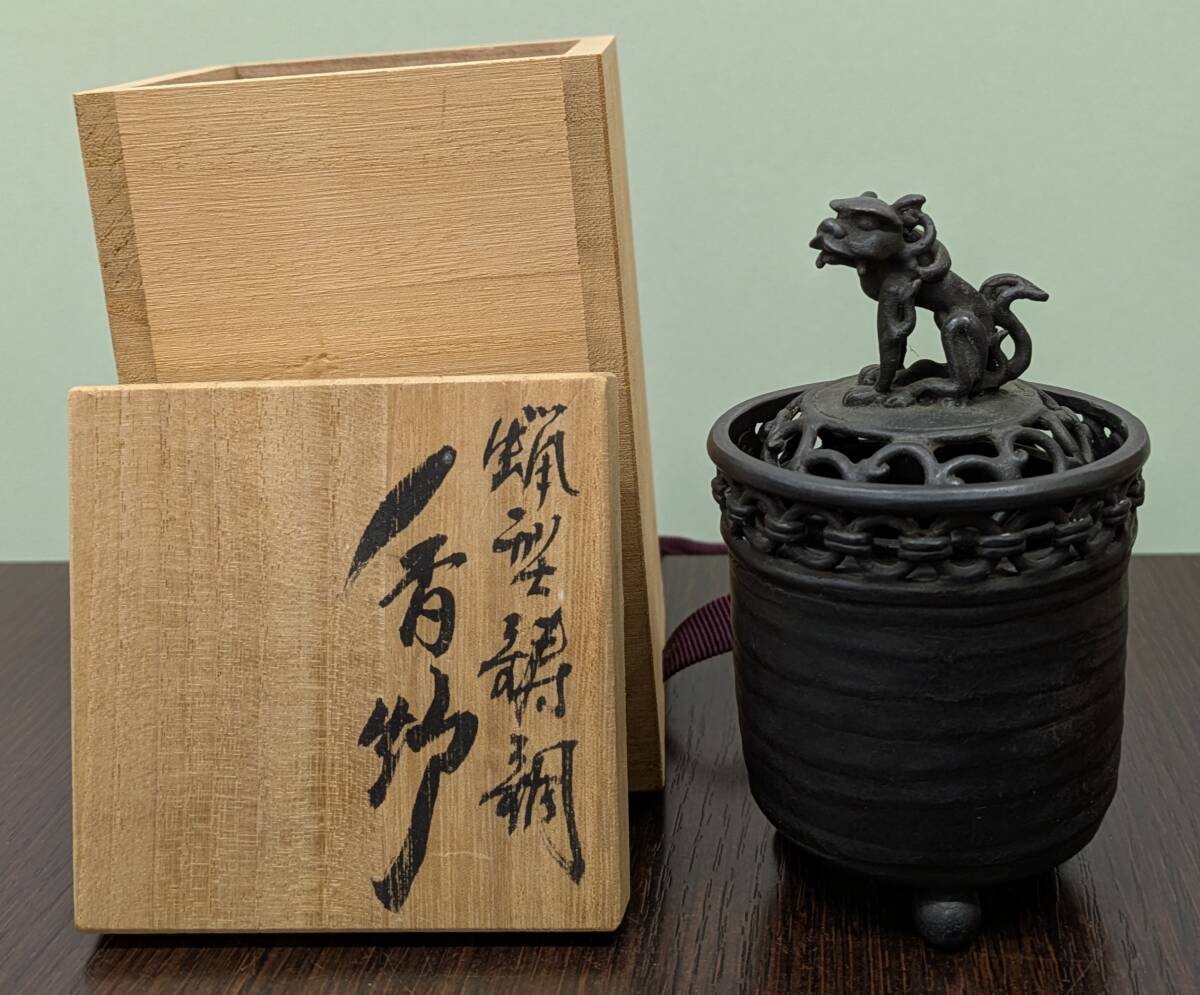 蝋型鋳銅
香炉